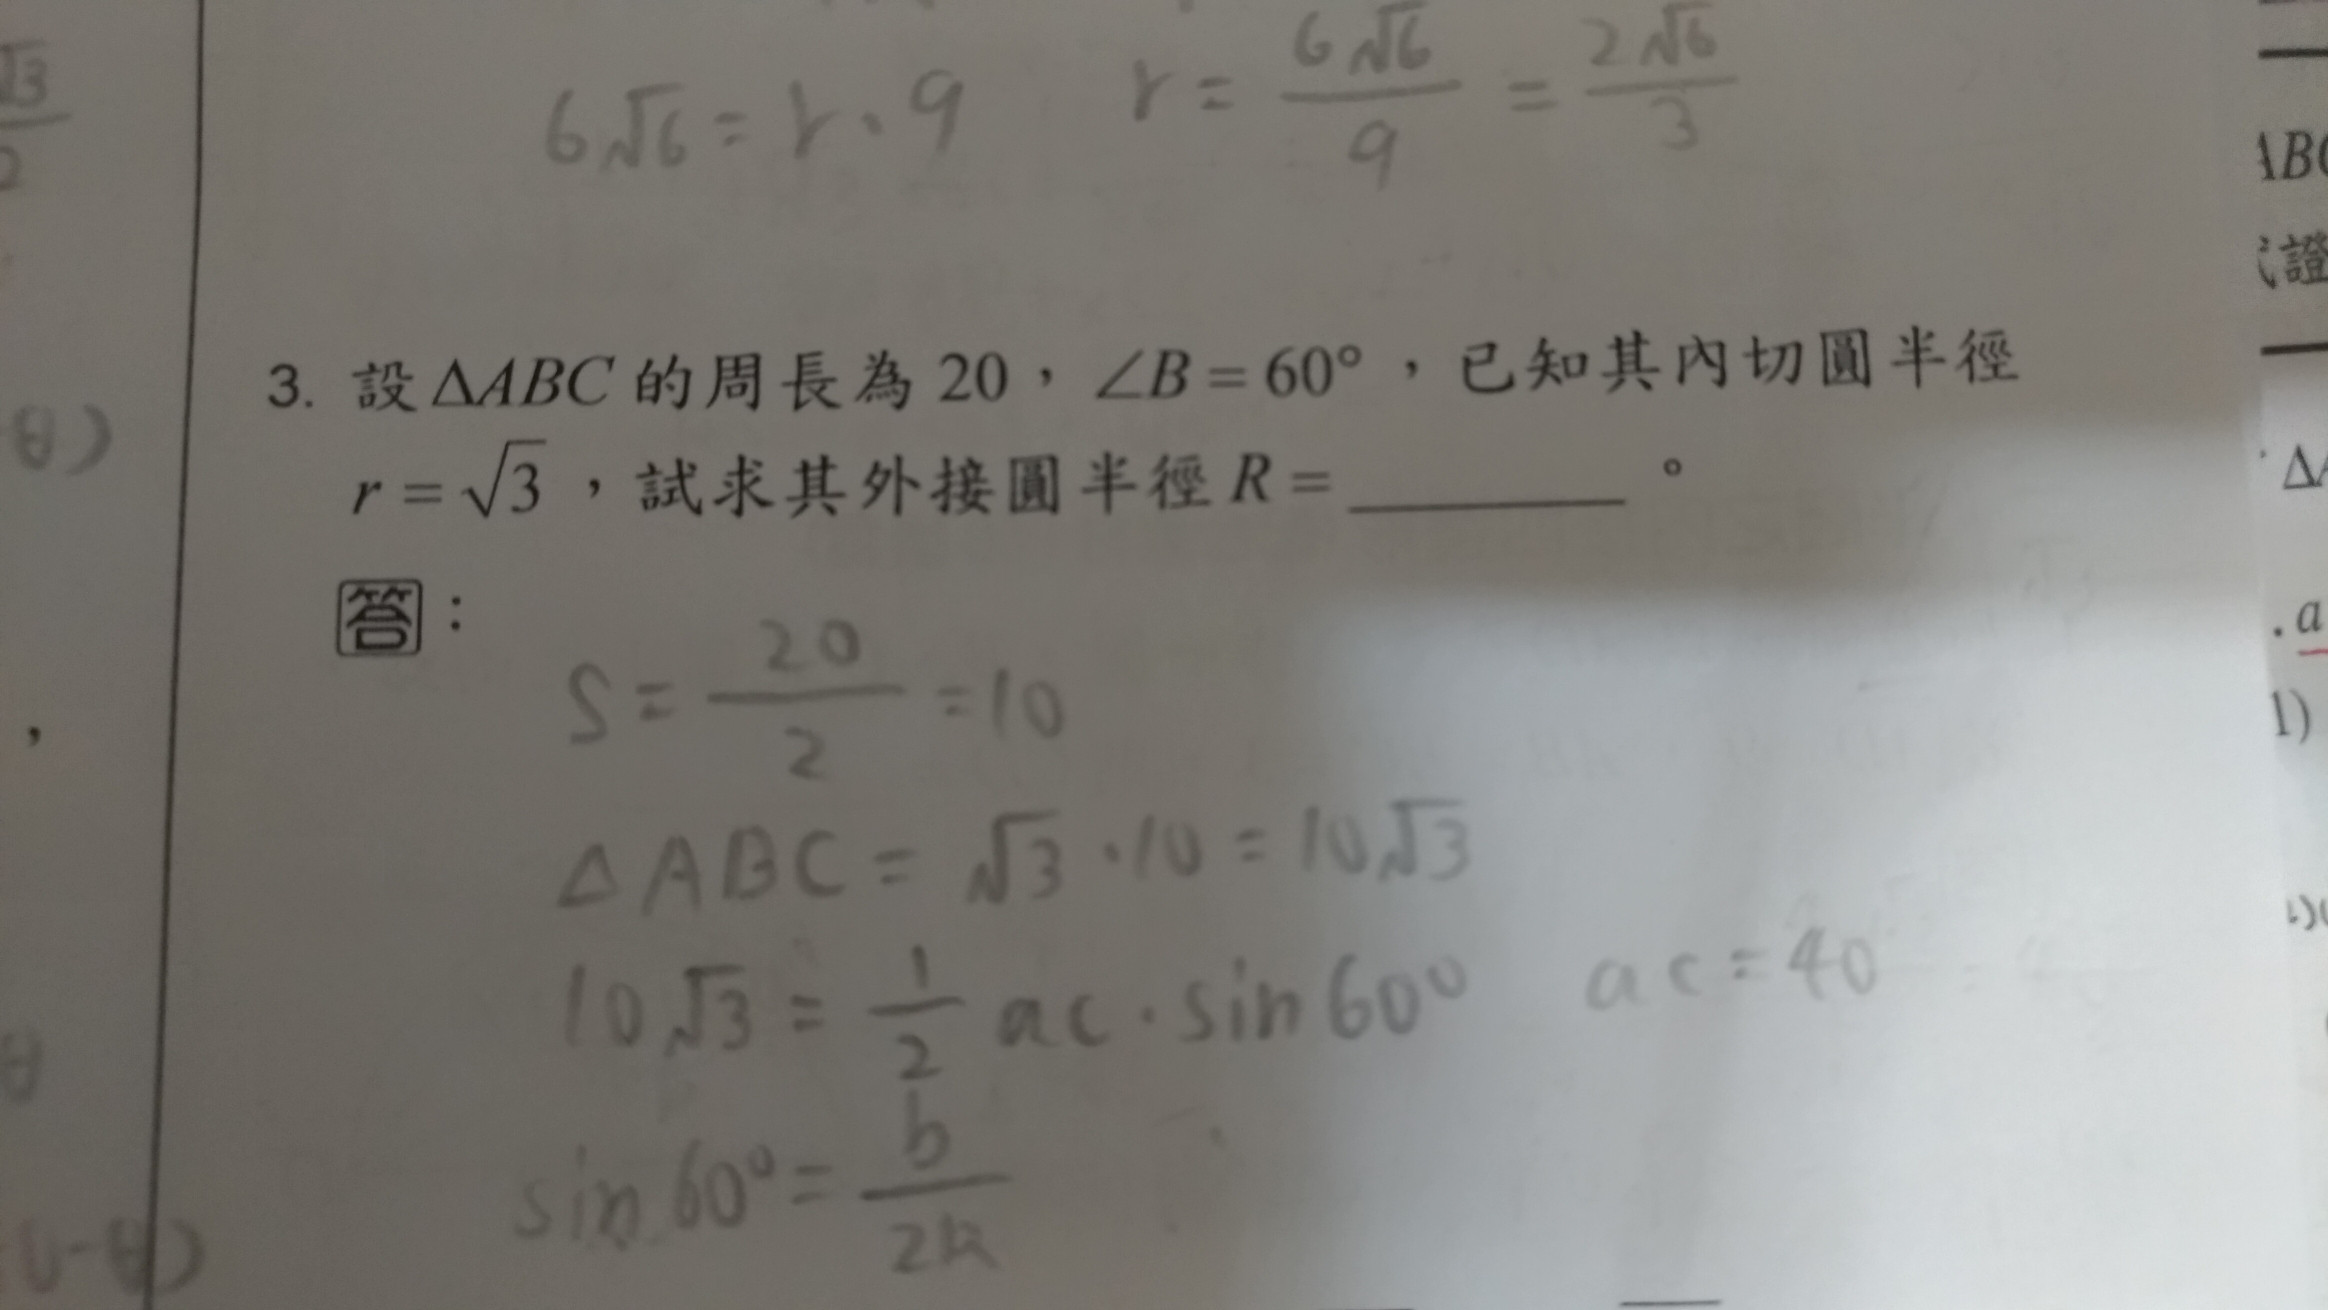 √3/2
6√6 = r·9 r = 6√6/9 = 2√6/3
θ)
3. 設 ΔABC 的周長為 20，∠B = 60°，已知其內切圓半徑
r = √3，試求其外接圓半徑 R = ______。
答：
S = 20/2 = 10
△ABC = √3·10 = 10√3
10√3 = 1/2 ac·sin60° ac = 40
sin60° = b/2R
，
θ
-θ)
ABC
證
ΔA
. a
1)